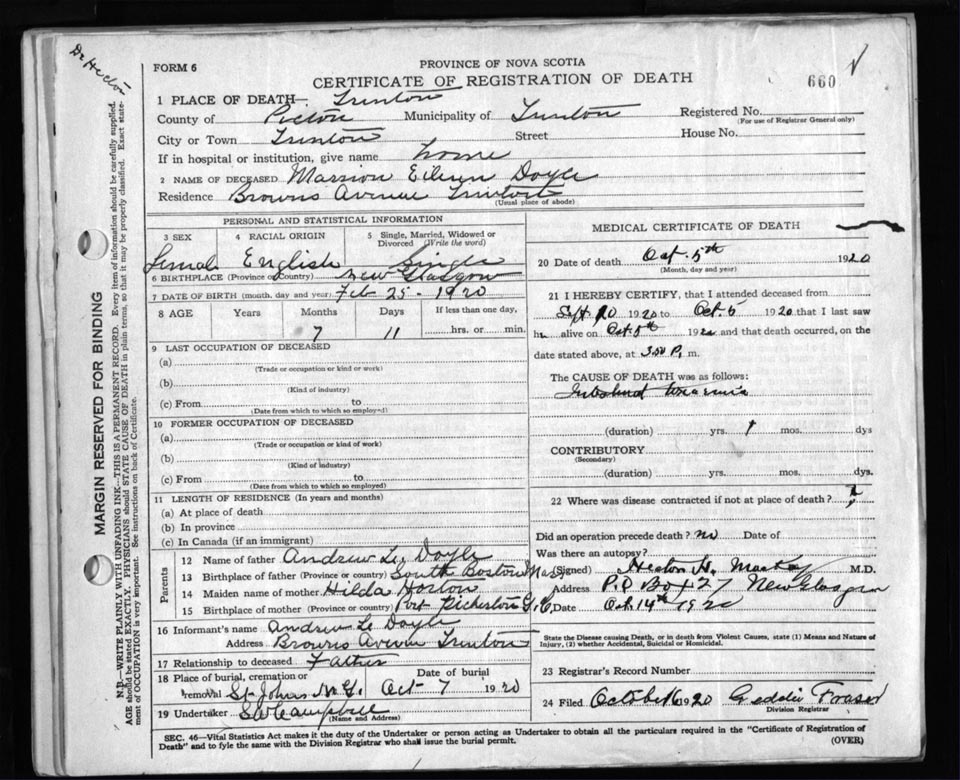 Dr Hector
FORM 6
PROVINCE OF NOVA SCOTIA
CERTIFICATE OF REGISTRATION OF DEATH
660
1 PLACE OF DEATH— Trenton
County of Pictou Municipality of Trenton Registered No.
(For use of Registrar General only)
City or Town Trenton Street House No.
If in hospital or institution, give name home
2 NAME OF DECEASED Marrion Eileen Doyle
Residence Browns Avenue Trenton
(Usual place of abode)
PERSONAL AND STATISTICAL INFORMATION
3 SEX 4 RACIAL ORIGIN 5 Single, Married, Widowed or Divorced (Write the word)
Female English Single
6 BIRTHPLACE (Province or Country) New Glasgow
7 DATE OF BIRTH (month, day and year) Feb 25 - 1920
8 AGE Years Months Days If less than one day,
7 11 hrs. or min.
9 LAST OCCUPATION OF DECEASED
(a)
(Trade or occupation or kind or work)
(b)
(Kind of industry)
(c) From to
(Date from which to which so employed)
10 FORMER OCCUPATION OF DECEASED
(a)
(Trade or occupation or kind of work)
(b)
(Kind of industry)
(c) From to
(Date from which to which so employed)
11 LENGTH OF RESIDENCE (In years and months)
(a) At place of death
(b) In province
(c) In Canada (if an immigrant)
Parents
12 Name of father Andrew Doyle
13 Birthplace of father (Province or country) South Boston Mass
14 Maiden name of mother Hilda Horton
15 Birthplace of mother (Province or country) Port
16 Informant's name Andrew Doyle
Address Browns Avenue Trenton
17 Relationship to deceased Father
18 Place of burial, cremation or Date of burial
removal St Johns N.G. Oct 7 1920
19 Undertaker Campbell
(Name and Address)
MEDICAL CERTIFICATE OF DEATH
20 Date of death Oct. 5th 1920
(Month, day and year)
21 I HEREBY CERTIFY, that I attended deceased from
Sept 1920 to Oct 5 1920 that I last saw
h alive on Oct 5th 1920 and that death occurred, on the
date stated above, at P. m.
The CAUSE OF DEATH was as follows:
Intestinal toxaemia
(duration) yrs. 1 mos. dys
CONTRIBUTORY
(Secondary)
(duration) yrs. mos. dys.
22 Where was disease contracted if not at place of death? ?
Did an operation precede death? no Date of
Was there an autopsy?
(Signed) Hector H. Mackay M.D.
Address P.O Box 27 New Glasgow
Date Oct. 14th 1920
State the Disease causing Death, or in death from Violent Causes, state (1) Means and Nature of
Injury, (2) whether Accidental, Suicidal or Homicidal.
23 Registrars Record Number
24 Filed October 16 1920 Geddie Fraser
Division Registrar
SEC. 46—Vital Statistics Act makes it the duty of the Undertaker or person acting as Undertaker to obtain all the particulars required in the "Certificate of Registration of
Death" and to fyle the same with the Division Registrar who shall issue the burial permit. (OVER)
MARGIN RESERVED FOR BINDING
N.B.—WRITE PLAINLY WITH UNFADING INK—THIS IS A PERMANENT RECORD. Every item of information should be carefully supplied.
AGE should be stated EXACTLY. PHYSICIANS should STATE CAUSE OF DEATH in plain terms, so that it may be properly classified. Exact state-
ment of OCCUPATION is very important. See instructions on back of Certificate.